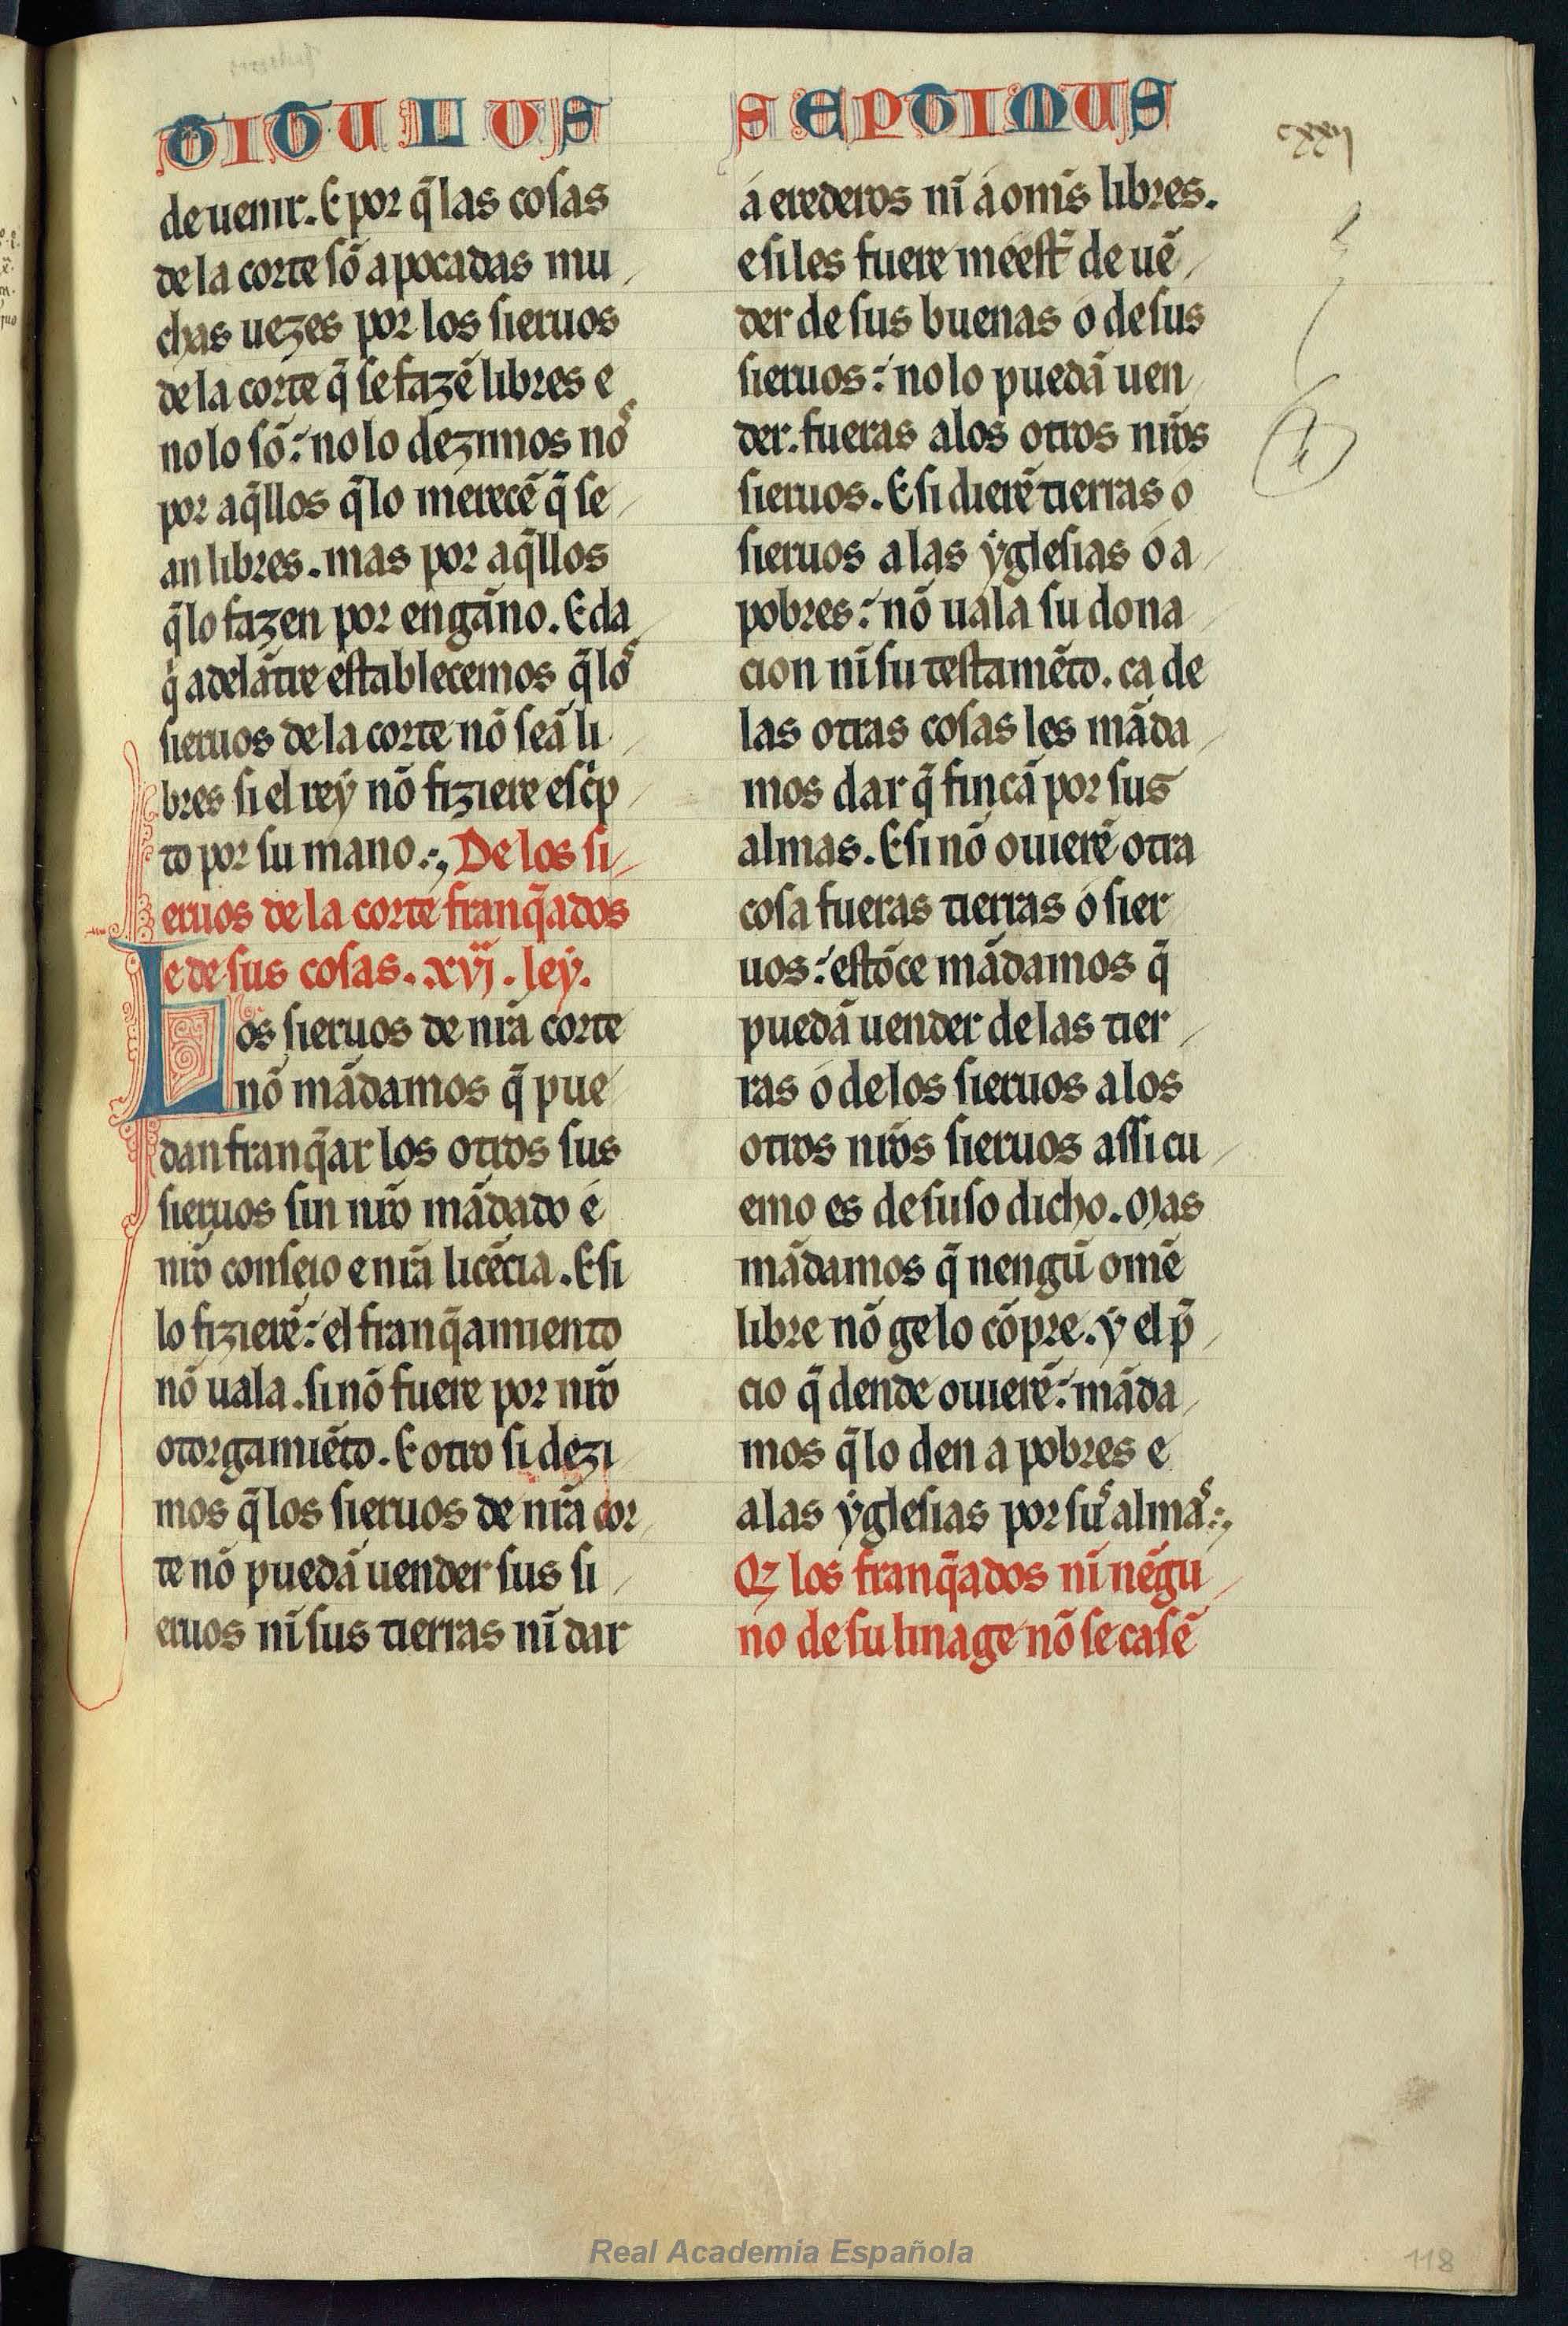 TITULUS SEPTIMUS
cxxij
de uenir. E por q̃ las cosas
de la corte sõ apocadas mu
chas uezes por los sieruos
de la corte q̃ se fazẽ libres e
no lo sõ: no lo dezimos noˢ
por aq̃llos q̃ lo merecẽ q̃ se
an libres. mas por aq̃llos
q̃ lo fazen por engãno. E da
q̃ adelãtre establecemos q̃ loˢ
sieruos de la corte nõ seã li
bres si el reẏ nõ fiziere esc̃p
to por su mano. De los si
eruos de la corte franq̃ados
e de sus cosas. xvj. leẏ.
Los sieruos de nr̃a corte
nõ mãdamos q̃ pue
dan franq̃ar los otros sus
sieruos sin nr̃o mãdado e
nr̃o conseio e nr̃a licẽcia. E si
lo fizierẽ: el franq̃amiento
nõ uala. si nõ fuere por nr̃o
otorgamiẽto. E otro si dezi
mos q̃ los sieruos de nr̃a cor
te nõ puedã uender sus si
eruos nĩ sus tierras nĩ dar
a erederos nĩ a om̃s libres.
e si les fuere meest̃ de uẽ
der de sus buenas o de sus
sieruos: no lo puedã uen
der. fueras a los otros nr̃os
sieruos. E si dierẽ tierras o
sieruos a las ẏglesias o a
pobres: nõ uala su dona
cion nĩ su testamẽto. ca de
las otras cosas les mãda
mos dar q̃ fincã por sus
almas. E si nõ ouierẽ otra
cosa fueras tierras o sier
uos: estõce mãdamos q̃
puedã uender de las tier
ras o de los sieruos a los
otros nr̃os sieruos assi cu
emo es de suso dicho. Mas
mãdamos q̃ nengũ omẽ
libre nõ ge lo cõpre. ẏ el p̃
cio q̃ dende ouierẽ: mãda
mos q̃ lo den a pobres e
a las ẏglesias por suˢ almaˢ.
Qz los franq̃ados nĩ nẽgu
no de su linage nõ se casẽ
Real Academia Española
118